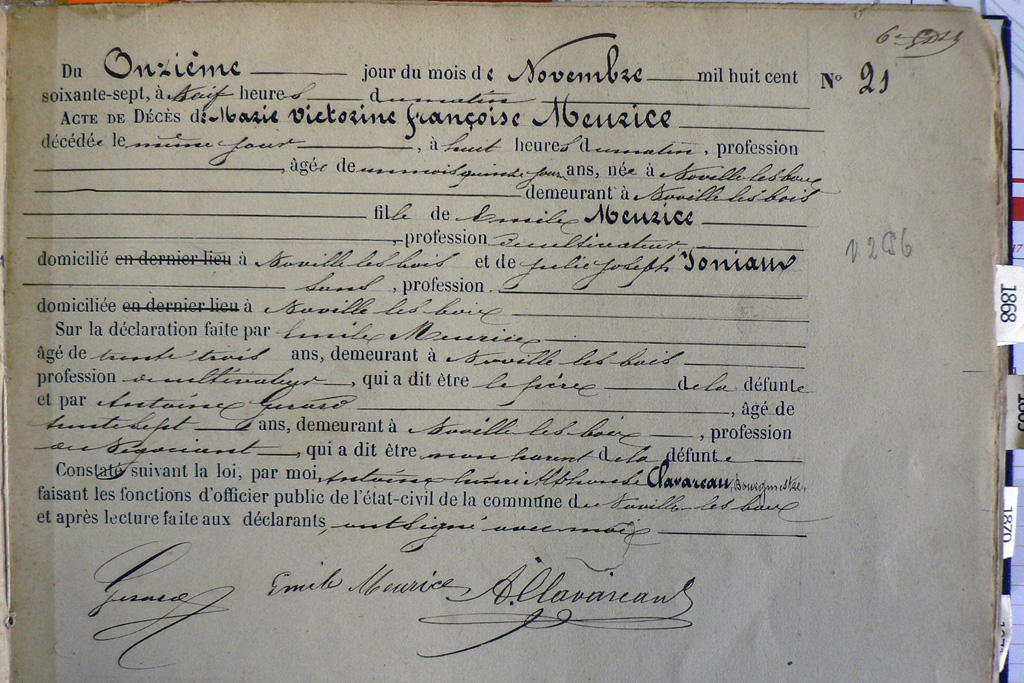 Du Onzième jour du mois de Novembre mil huit cent N° 21
soixante-sept, à Neuf heures du matin
ACTE DE DÉCÈS de Marie Victorine françoise Meurice
décédée le même jour, à huit heures du matin, profession
, âgée de un mois quinze jours ans, née à Noville les bois
demeurant à Noville les bois
fille de Emile Meurice
, profession de cultivateur
domicilié en dernier lieu à Noville les bois et de Julie Joseph Joniaux
sans, profession
domiciliée en dernier lieu à Noville les bois
Sur la déclaration faite par Emile Meurice
âgé de trente trois ans, demeurant à Noville les bois
profession de cultivateur, qui a dit être le père de la défunte
et par Antoine Gerard, âgé de
trente sept ans, demeurant à Noville les bois, profession
de Negociant, qui a dit être non parent de la défunte
Constaté suivant la loi, par moi, Antoine henri Alphonse Clavareau, Bourgmestre,
faisant les fonctions d'officier public de l'état-civil de la commune de Noville-les-bois
et après lecture faite aux déclarants, ont signé avec moi
Gerard Emile Meurice A. Clavareau
1868
1870